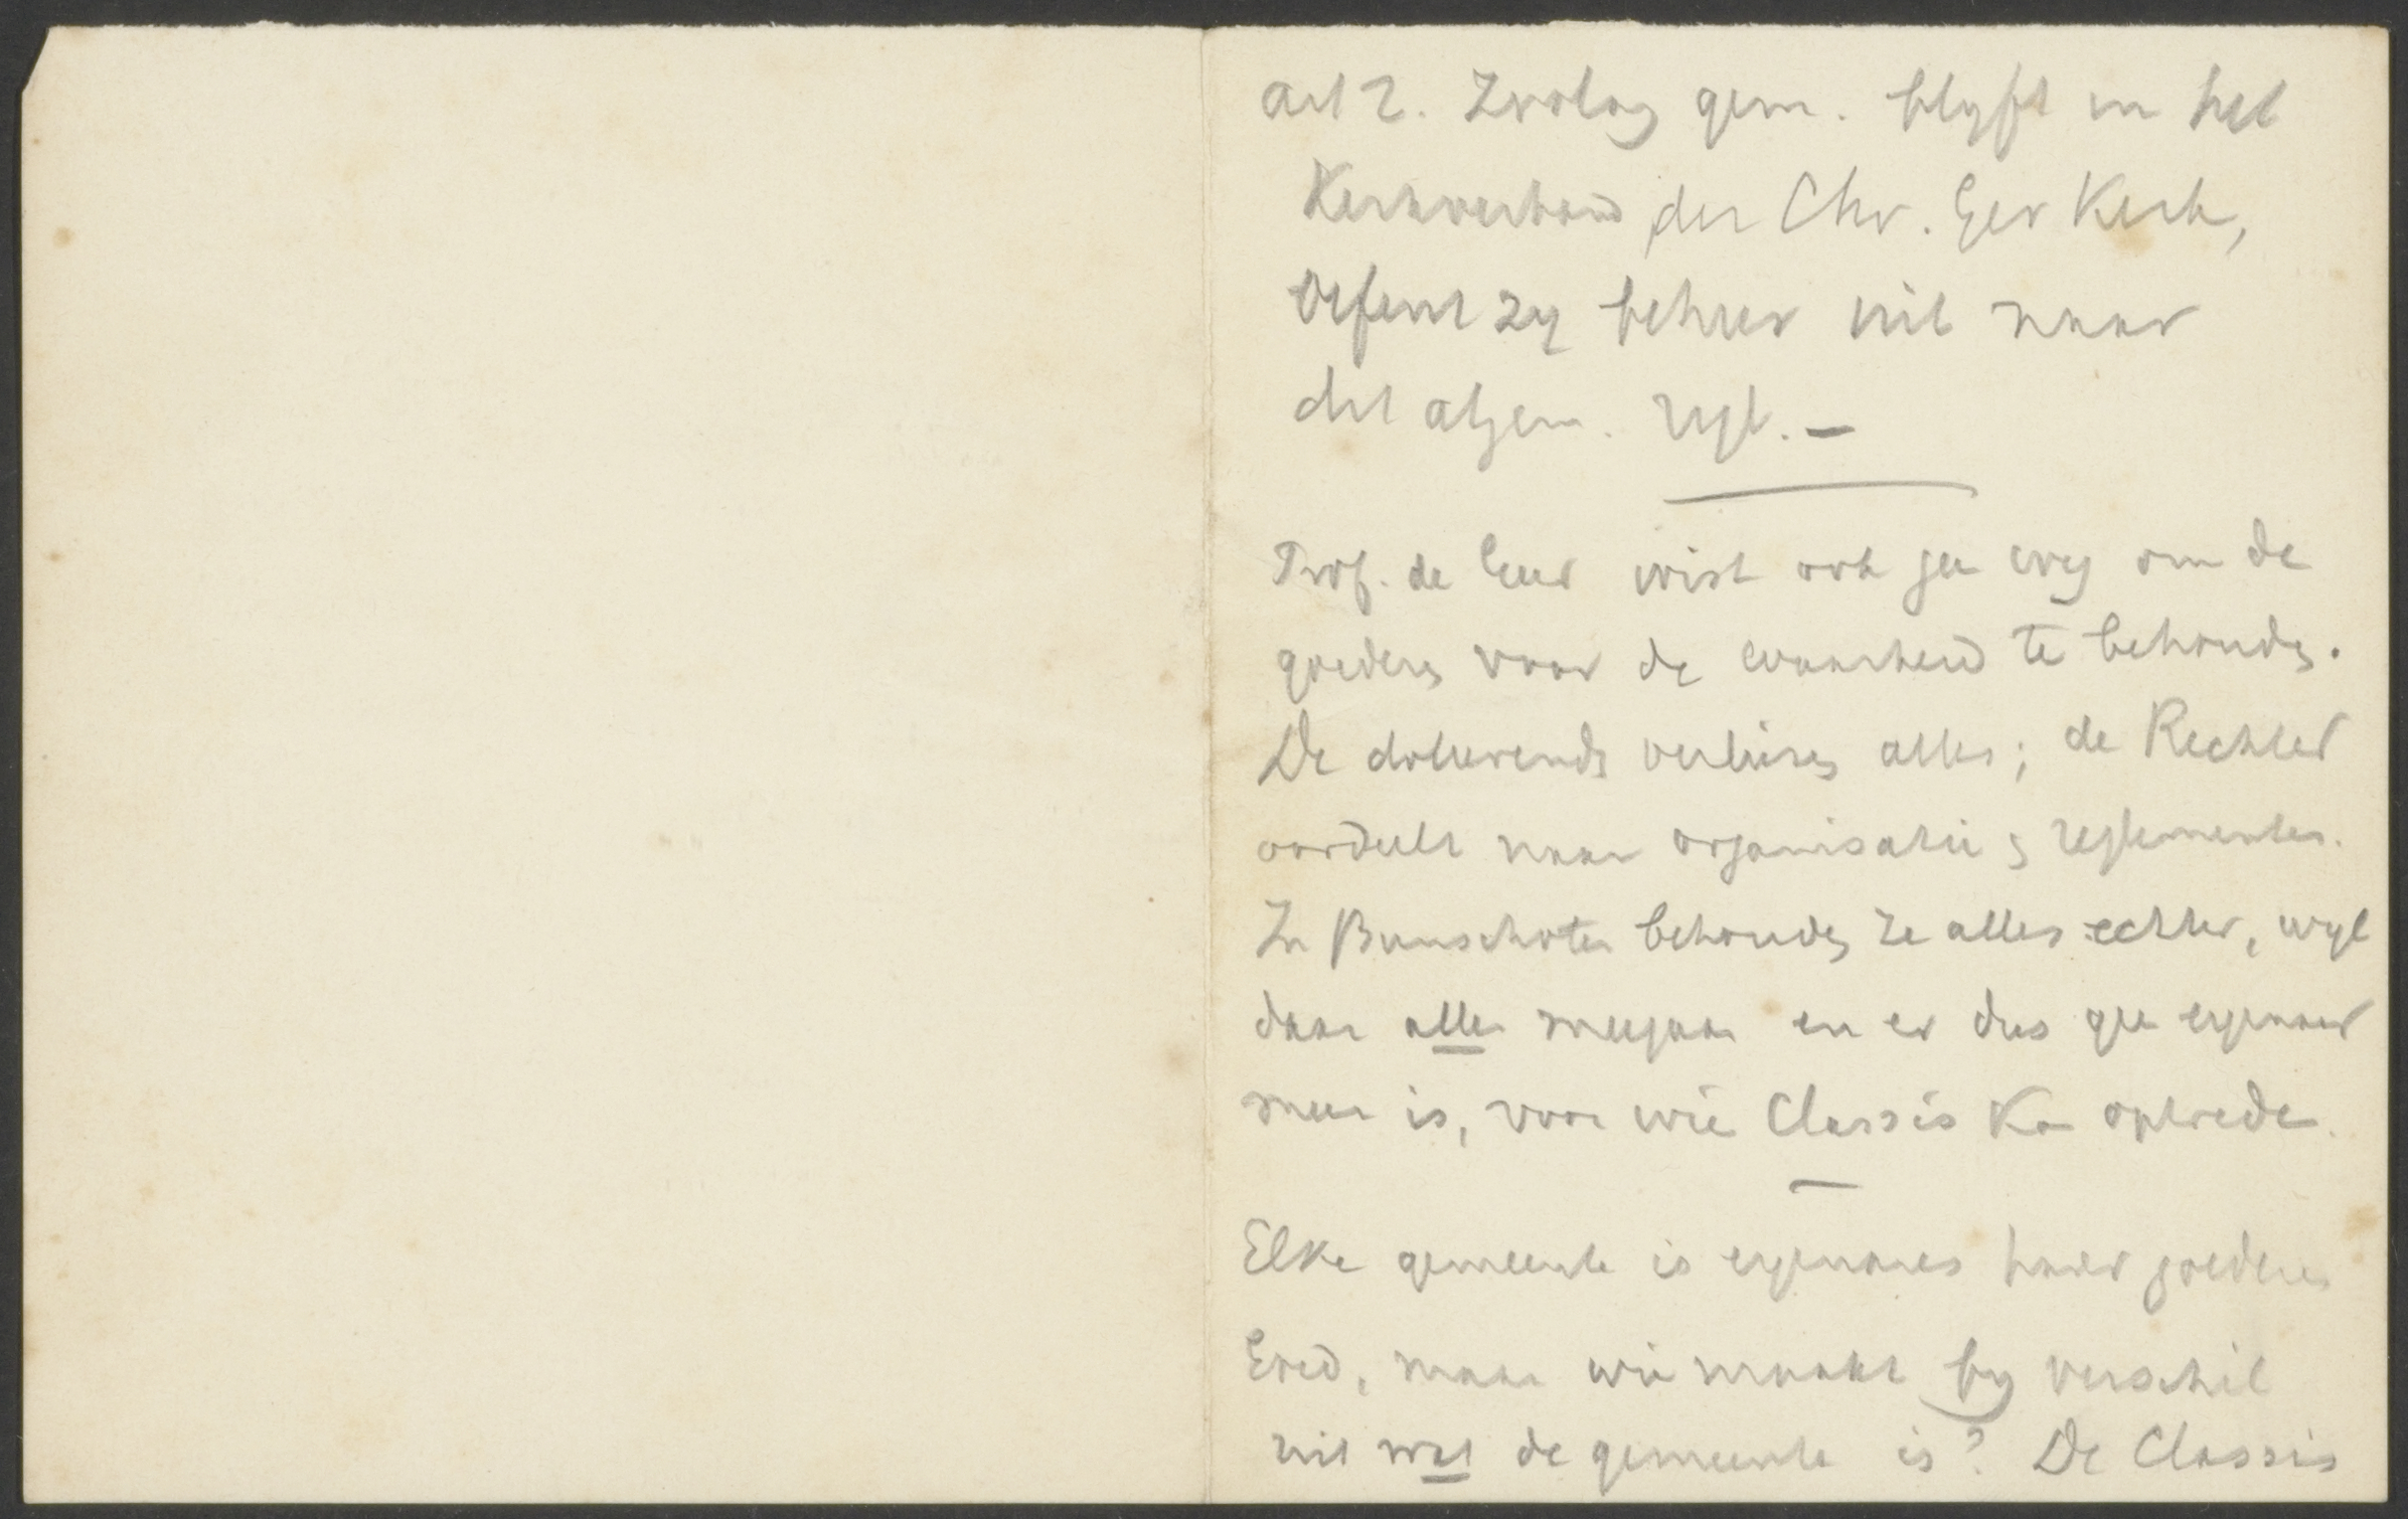 art 2. Zoolang gem. blyft in het
Kerkverband der Chr. Ger Kerk,
oefent zy beheer uit naar
dit algem. regl. —
Prof. de Geer wist ook gee weg om de
goederen voor de waarheid te behouden.
De doleerende verliezen alles; de Rechter
oordeelt naar organisatie en reglementen.
In Bunschoten behouden ze alles echter, wyl
daar allen meegaan en er dus gee eigenaar
meer is, voor wie Classis Kan optreden.
Elke gemeente is eigenares harer goederen
Goed, maar wie maakt by verschil
uit wat de gemeente is? De Classis